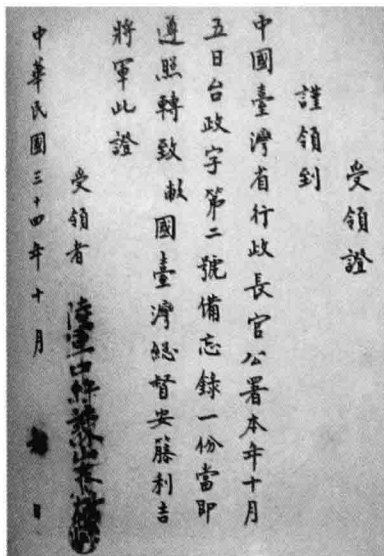 受領證
謹領到
中國臺灣省行政長官公署本年十月
五日台政字第二號備忘錄一份當即
遵照轉致 敝國臺灣總督安藤利吉
將軍此證
受領者 陸軍中將諫山春樹
中華民國三十四年十月 日